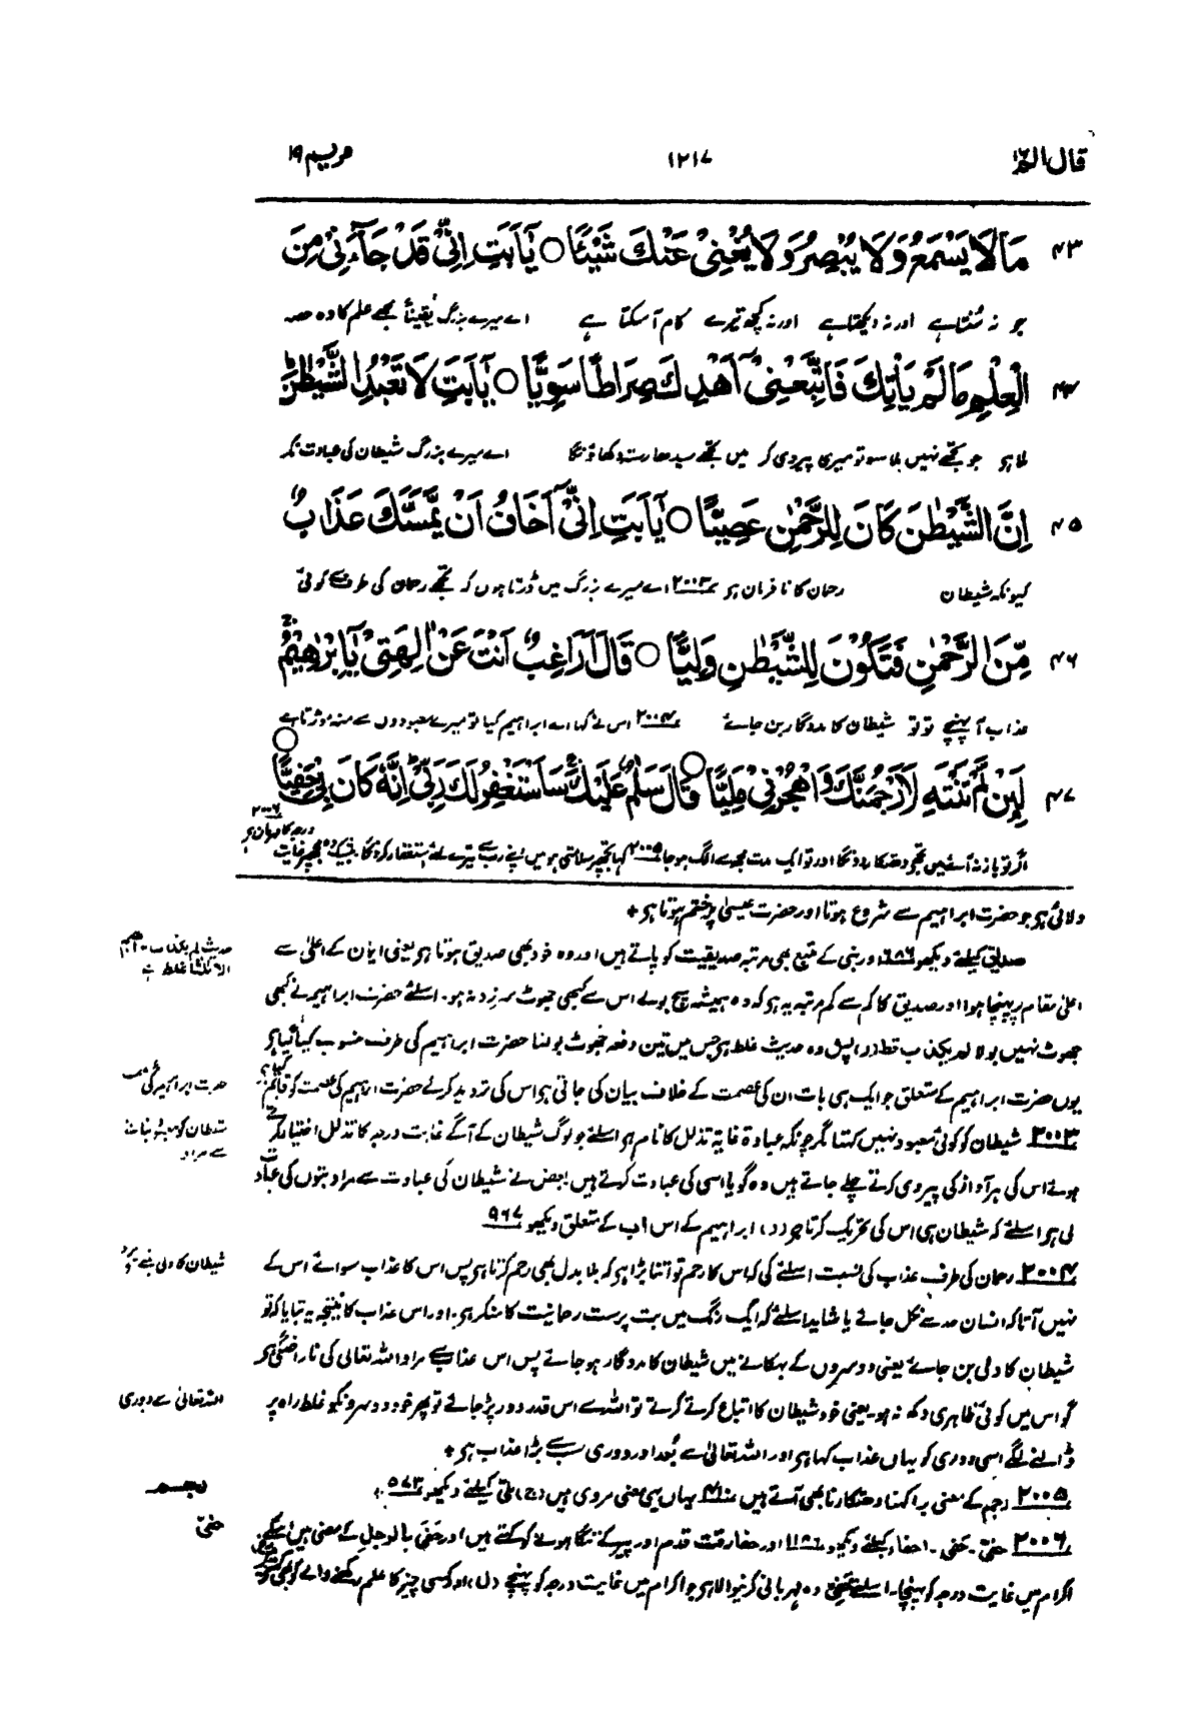 قال الم ١٢١٧ مریم ١٩
٤٣ مَا لَا يَسْمَعُ وَلَا يُبْصِرُ وَلَا يُغْنِيْ عَنْكَ شَيْئًا ○ يٰٓاَبَتِ اِنِّيْ قَدْ جَآءَنِيْ مِنَ
جو نہ سُنتا ہے اور نہ دیکھتا ہے اور نہ کچھ تیرے کام آ سکتا ہے اے میرے بزرگ یقیناً مجھے علم کا وہ حصہ
٤٤ الْعِلْمِ مَا لَمْ يَاْتِكَ فَاتَّبِعْنِيْٓ اَهْدِكَ صِرَاطًا سَوِيًّا ○ يٰٓاَبَتِ لَا تَعْبُدِ الشَّيْطٰنَ
ملا ہو جو تجھے نہیں ملا سو تو میری پیروی کر میں تجھے سیدھا رستہ دکھاؤنگا اے میرے بزرگ شیطان کی عبادت نہ کر
٤٥ اِنَّ الشَّيْطٰنَ كَانَ لِلرَّحْمٰنِ عَصِيًّا ○ يٰٓاَبَتِ اِنِّيْٓ اَخَافُ اَنْ يَّمَسَّكَ عَذَابٌ
کیونکہ شیطان رحمان کا نافرمان ہو ٢٠٠٣ اے میرے بزرگ میں ڈرتا ہوں کہ تجھے رحمان کی طرف سے کوئی
٤٦ مِّنَ الرَّحْمٰنِ فَتَكُوْنَ لِلشَّيْطٰنِ وَلِيًّا ○ قَالَ اَرَاغِبٌ اَنْتَ عَنْ اٰلِهَتِيْ يٰٓاِبْرٰهِيْمُ
عذاب آ پہنچے تو تو شیطان کا مددگار بن جائے ٢٠٠٤ اس نے کہا اے ابراہیم کیا تو میرے معبودوں سے منہ موڑتا ہے
٤٧ لَئِنْ لَّمْ تَنْتَهِ لَاَرْجُمَنَّكَ وَاهْجُرْنِيْ مَلِيًّا ○ قَالَ سَلٰمٌ عَلَيْكَ سَاَسْتَغْفِرُ لَكَ رَبِّيْ اِنَّهٗ كَانَ بِيْ حَفِيًّا ○
اگر تو باز نہ آئے میں تجھے دھتکار دونگا اور تو ایک مدت مجھ سے الگ ہو جا ٢٠٠٥ کہا تجھ پر سلامتی ہو میں اپنے رب سے تیرے لئے استغفار کرونگا بیشک وہ مجھ پر غایت درجہ کا مہربان ہو ٢٠٠٦
دلائی ہو جو حضرت ابراہیم سے شروع ہوتا اور حضرت عیسیٰ پر ختم ہوتا ہو +
صدیق کیلئے دیکھو ٦٨٦ اور نبی کے متبع بھی مرتبہ صدیقیت کو پاتے ہیں اور وہ خود بھی صدیق ہوتا ہو یعنی ایمان کے اعلیٰ سے
حدیث لم یکذب ابراہیم الا ثلاثا غلط ہے
اعلیٰ مقام پر پہنچا ہوا اور صدیق کا کم سے کم مرتبہ یہ ہو کہ وہ ہمیشہ سچ بولے اس سے کبھی جھوٹ سرزد نہ ہو۔ اسلئے حضرت ابراہیم نے کبھی
جھوٹ نہیں بولا لم یکذب قط در اصل وہ حدیث غلط ہو جس میں تین دفعہ جھوٹ بولنا حضرت ابراہیم کی طرف منسوب کیا گیا ہو
یوں حضرت ابراہیم کے متعلق جو ایک ہی بات ان کی عصمت کے خلاف بیان کی جاتی ہو اس کی تردید کرکے حضرت ابراہیم کی عصمت کو قائم کیا ہو
حضرت ابراہیم کی
٢٠٠٣ شیطان کو کوئی معبود نہیں کہتا مگر چونکہ عبادۃ غایۃ تذلل کا نام ہو اسلئے جو لوگ شیطان کے آگے غایت درجہ کا تذلل اختیار کرتے
شیطان کو معبود بنانے سے مراد
ہوئے اس کی ہر آواز کی پیروی کرتے چلے جاتے ہیں وہ گویا اسی کی عبادت کرتے ہیں بعض نے شیطان کی عبادت سے مراد بتوں کی عبادت
لی ہو اسلئے کہ شیطان ہی اس کی تحریک کرتا ہو (د) ابراہیم کے اس اب کے متعلق دیکھو ٩٦٧
٢٠٠٤ رحمان کی طرف عذاب کی نسبت اسلئے کی کہ اس کا رحم تو اتنا بڑا ہو کہ بلا بدل بھی رحم کرتا ہو پس اس کا عذاب سوائے اس کے
شیطان کا ولی بننے سے مراد
نہیں آتا کہ انسان حد سے نکل جائے یا شاید اسلئے کہ ایک رنگ میں بت پرست رحمانیت کا منکر ہو۔ اور اس عذاب کا نتیجہ یہ بتایا کہ تو
شیطان کا ولی بن جائے یعنی دوسروں کے بہکانے میں شیطان کا مددگار ہو جائے پس اس عذاب سے مراد اللہ تعالیٰ کی ناراضگی ہو
گو اس میں کوئی ظاہری دکھ نہ ہو۔ یعنی خود شیطان کا اتباع کرتے کرتے تو اللہ سے اس قدر دور پڑ جائے تو پھر خود دوسرونکو غلط راہ پر
اللہ تعالیٰ سے دوری
ڈالنے لگے اسی دوری کو یہاں عذاب کہا ہو اور اللہ تعالیٰ سے بُعد اور دوری سب سے بڑا عذاب ہو +
٢٠٠٥ رجم کے معنی برا کہنا دھتکارنا بھی آتے ہیں یہاں یہی معنی مروی ہیں (ج) ملی کیلئے دیکھو ٥٧٣ +
رجم
٢٠٠٦ حفیّ۔ حَفِی۔ احفاء کیلئے دیکھو اور حفا رقت قدم اور پیر کے ننگا ہونے کو کہتے ہیں اور حَفِیَ بالرجل کے معنی ہیں اسکے
حفیّ
اکرام میں غایت درجہ کو پہنچا۔ اسلئے حَفِیّ وہ مہربانی کرنیوالا ہو جو اکرام میں غایت درجہ کو پہنچے (ل) اور کسی چیز کا علم رکھنے والے کو بھی